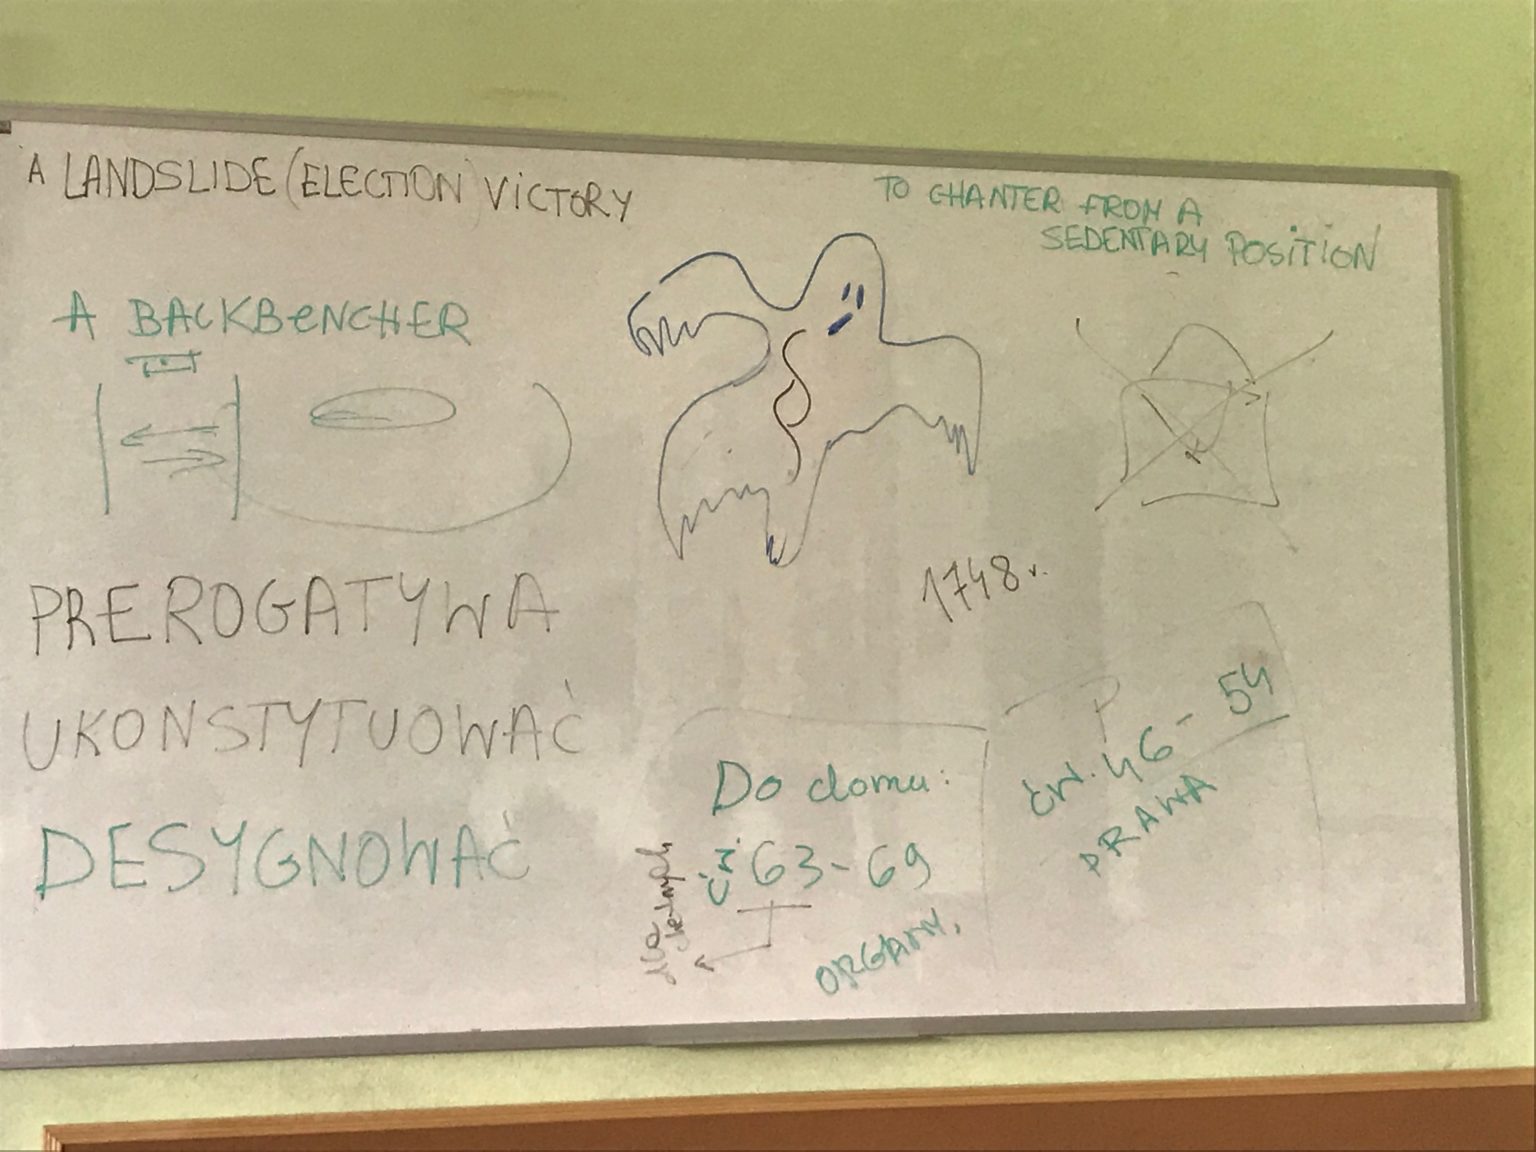 A LANDSLIDE (ELECTION) VICTORY
TO CHANTER FROM A
SEDENTARY POSITION
A BACKBENCHER
PREROGATYWA
UKONSTYTUOWAĆ
DESYGNOWAĆ
1748 r.
P
ćw. 46 - 54
PRAWA
Do domu:
ćw. 63 - 69
ORGANY.